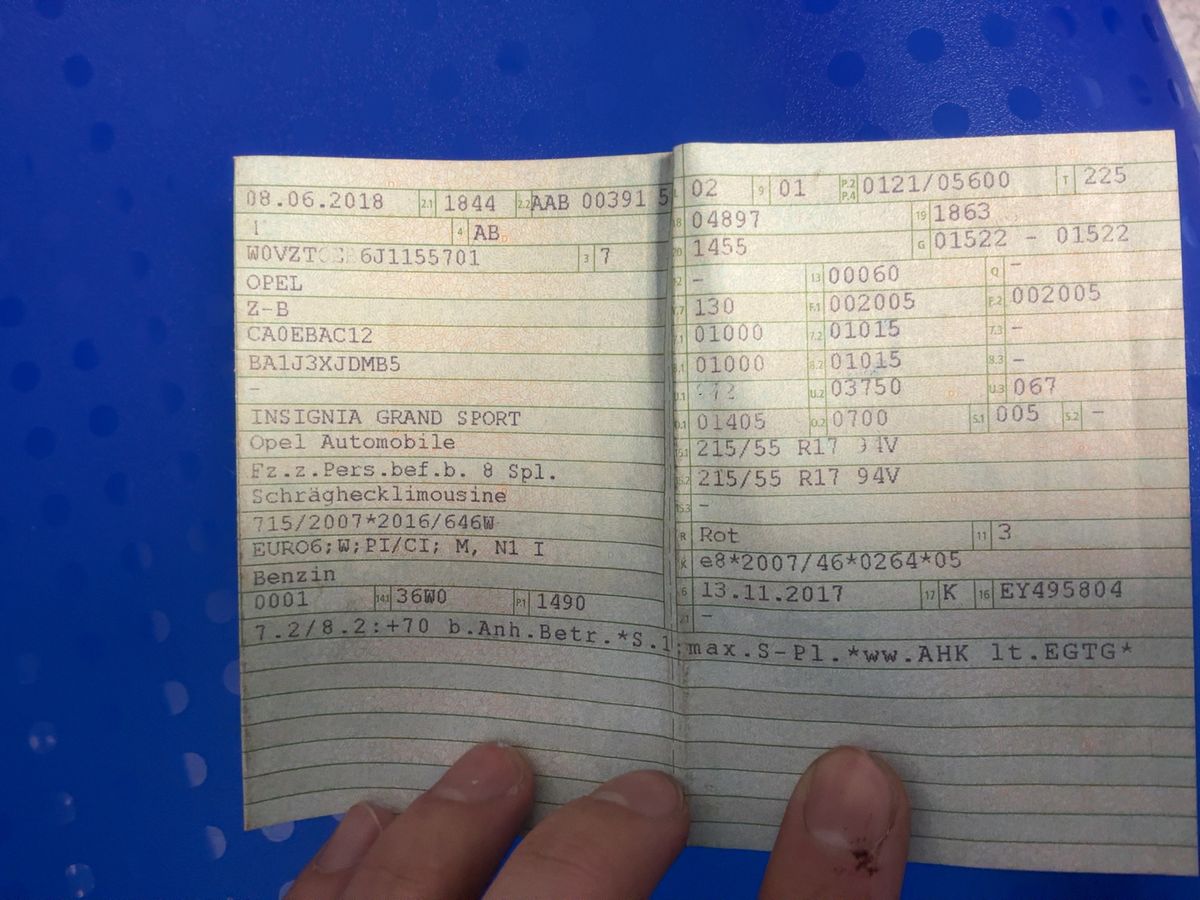 08.06.2018 2.1 1844 2.2 AAB 00391 5
4 AB
6J1155701 3 7
OPEL
Z-B
CA0EBAC12
BA1J3XJDMB5
-
INSIGNIA GRAND SPORT
Opel Automobile
Fz.z.Pers.bef.b. 8 Spl.
Schräghecklimousine
715/2007*2016/646W
EURO6;W;PI/CI; M, N1 I
Benzin
0001 14.1 36W0 P.1 1490
7.2/8.2:+70 b.Anh.Betr.*S.1:max.S-Pl.*ww.AHK lt.EGTG*
L 02 9 01 P.2 P.4 0121/05600 T 225
18 04897 19 1863
20 1455 G 01522 - 01522
12 - 13 00060 Q -
V.7 130 F.1 002005 F.2 002005
7.1 01000 7.2 01015 7.3 -
8.1 01000 8.2 01015 8.3 -
U.1 U.2 03750 U.3 067
O.1 01405 O.2 0700 S.1 005 S.2 -
15.1 215/55 R17 94V
15.2 215/55 R17 94V
15.3 -
R Rot 11 3
K e8*2007/46*0264*05
6 13.11.2017 17 K 16 EY495804
21 -